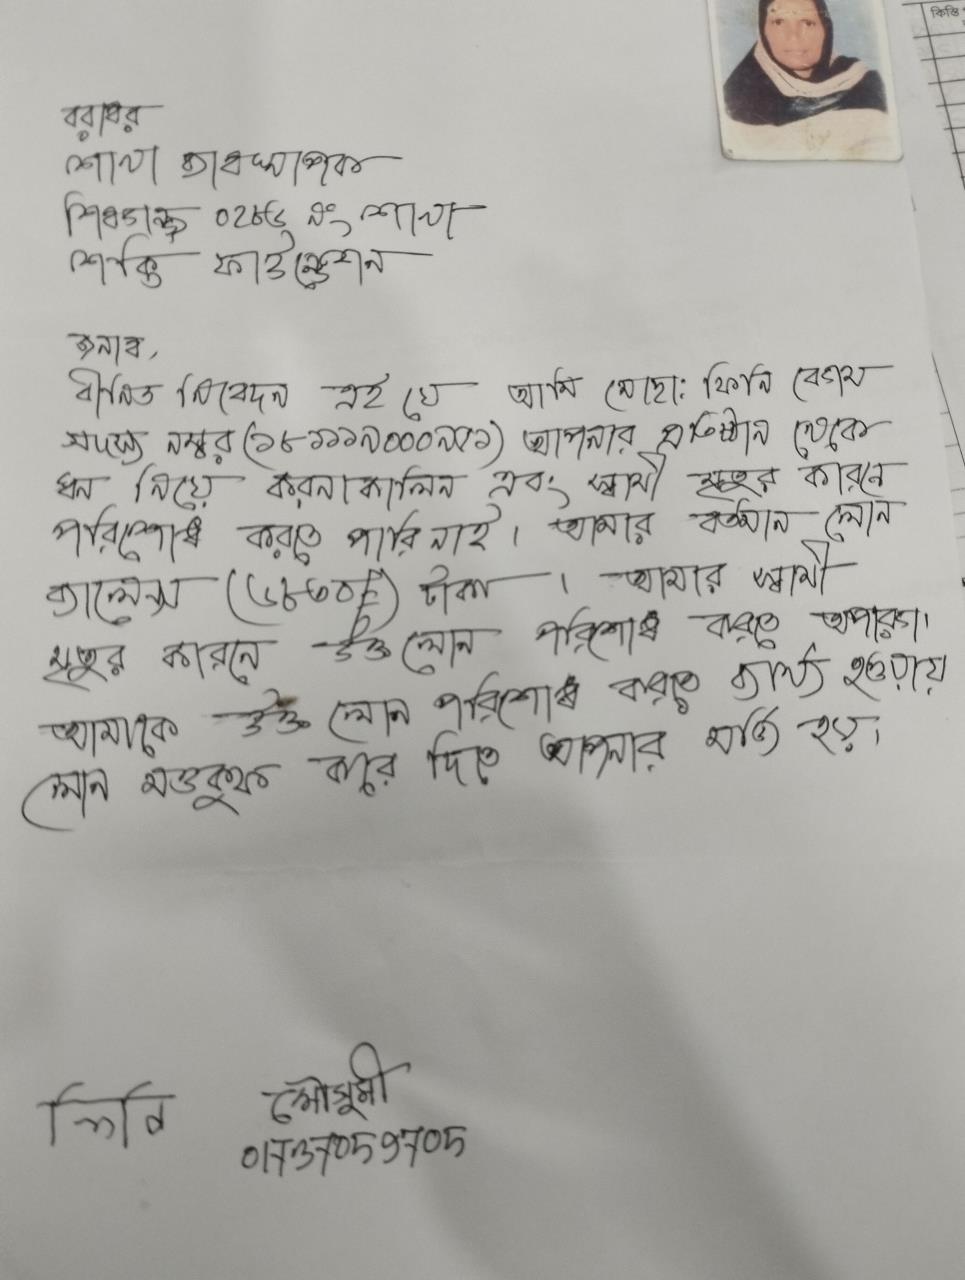 কিস্তি
বরাবর
শাখা ব্যাবস্থাপক
শিবগঞ্জ নং শাখা
শক্তি ফাউন্ডেশন
জনাব,
বীনিত নিবেদন এই যে আমি মোছা: ফিনি বেগম
সদস্য নম্বর আপনার প্রতিষ্ঠান থেকে
ঋন নিয়ে করনাকালিন এবং স্বামী মৃত্যুর কারনে
পরিশোধ করতে পারি নাই। আমার বর্তমান লোন
ব্যালেন্স টাকা। আমার স্বামী
মৃত্যুর কারনে উক্ত লোন পরিশোধ করতে অপারগ।
আমাকে উক্ত লোন পরিশোধ করতে ব্যার্থ্য হওয়ায়
লোন মওকুফ করে দিতে আপনার মর্জি হয়।
ফিনি মৌসুমী
01737059705